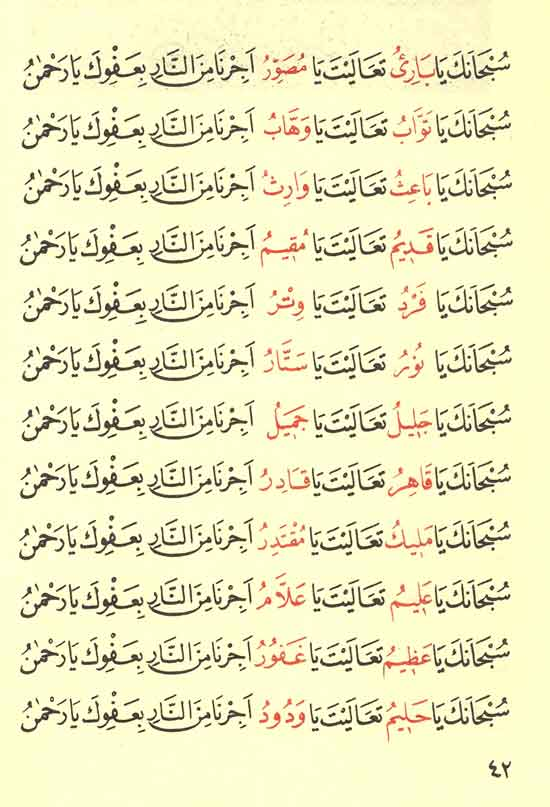 سُبْحَانَكَ يَا بَارِئُ تَعَالَيْتَ يَا مُصَوِّرُ اَجِرْنَا مِنَ النَّارِ بِعَفْوِكَ يَا رَحْمٰنُ
سُبْحَانَكَ يَا تَوَّابُ تَعَالَيْتَ يَا وَهَّابُ اَجِرْنَا مِنَ النَّارِ بِعَفْوِكَ يَا رَحْمٰنُ
سُبْحَانَكَ يَا بَاعِثُ تَعَالَيْتَ يَا وَارِثُ اَجِرْنَا مِنَ النَّارِ بِعَفْوِكَ يَا رَحْمٰنُ
سُبْحَانَكَ يَا قَدِيمُ تَعَالَيْتَ يَا مُقِيمُ اَجِرْنَا مِنَ النَّارِ بِعَفْوِكَ يَا رَحْمٰنُ
سُبْحَانَكَ يَا فَرْدُ تَعَالَيْتَ يَا وِتْرُ اَجِرْنَا مِنَ النَّارِ بِعَفْوِكَ يَا رَحْمٰنُ
سُبْحَانَكَ يَا نُورُ تَعَالَيْتَ يَا سَتَّارُ اَجِرْنَا مِنَ النَّارِ بِعَفْوِكَ يَا رَحْمٰنُ
سُبْحَانَكَ يَا جَلِيلُ تَعَالَيْتَ يَا جَمِيلُ اَجِرْنَا مِنَ النَّارِ بِعَفْوِكَ يَا رَحْمٰنُ
سُبْحَانَكَ يَا قَاهِرُ تَعَالَيْتَ يَا قَادِرُ اَجِرْنَا مِنَ النَّارِ بِعَفْوِكَ يَا رَحْمٰنُ
سُبْحَانَكَ يَا مَلِيكُ تَعَالَيْتَ يَا مُقْتَدِرُ اَجِرْنَا مِنَ النَّارِ بِعَفْوِكَ يَا رَحْمٰنُ
سُبْحَانَكَ يَا عَلِيمُ تَعَالَيْتَ يَا عَلَّامُ اَجِرْنَا مِنَ النَّارِ بِعَفْوِكَ يَا رَحْمٰنُ
سُبْحَانَكَ يَا عَظِيمُ تَعَالَيْتَ يَا غَفُورُ اَجِرْنَا مِنَ النَّارِ بِعَفْوِكَ يَا رَحْمٰنُ
سُبْحَانَكَ يَا حَلِيمُ تَعَالَيْتَ يَا وَدُودُ اَجِرْنَا مِنَ النَّارِ بِعَفْوِكَ يَا رَحْمٰنُ
٤٢